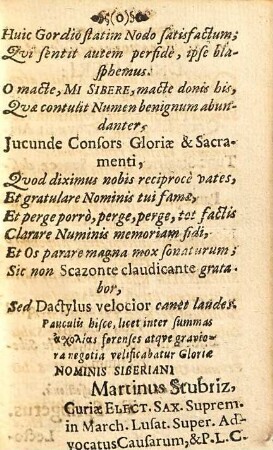 (o)
Huic Gordio statim Nodo satisfactum;
Qvi sentit autem perfidè, ipse bla-
sphemus.
O macte, MI SIBERE, macte donis his,
Qvæ contulit Numen benignum abun-
danter,
Jucunde Consors Gloriæ & Sacra-
menti,
Quod diximus nobis reciprocè vates,
Et gratulare Nominis tui famæ,
Et perge porrò, perge, perge, tot factis
Clarare Numinis memoriam fidi,
Et Os parare magna mox sonaturum;
Sic non Scazonte claudicante grata-
bor,
Sed Dactylus velocior canet laudes.
Pauculis hisce, licet inter summas
ἀσχολίας forenses atqve gravio-
ra negotia velificabatur Gloriæ
NOMINIS SIBERIANI
Martinus Stubriz,
Curiæ ELECT. SAX. Suprem.
in March. Lusat. Super. Ad-
vocatus Causarum, & P. L. C.